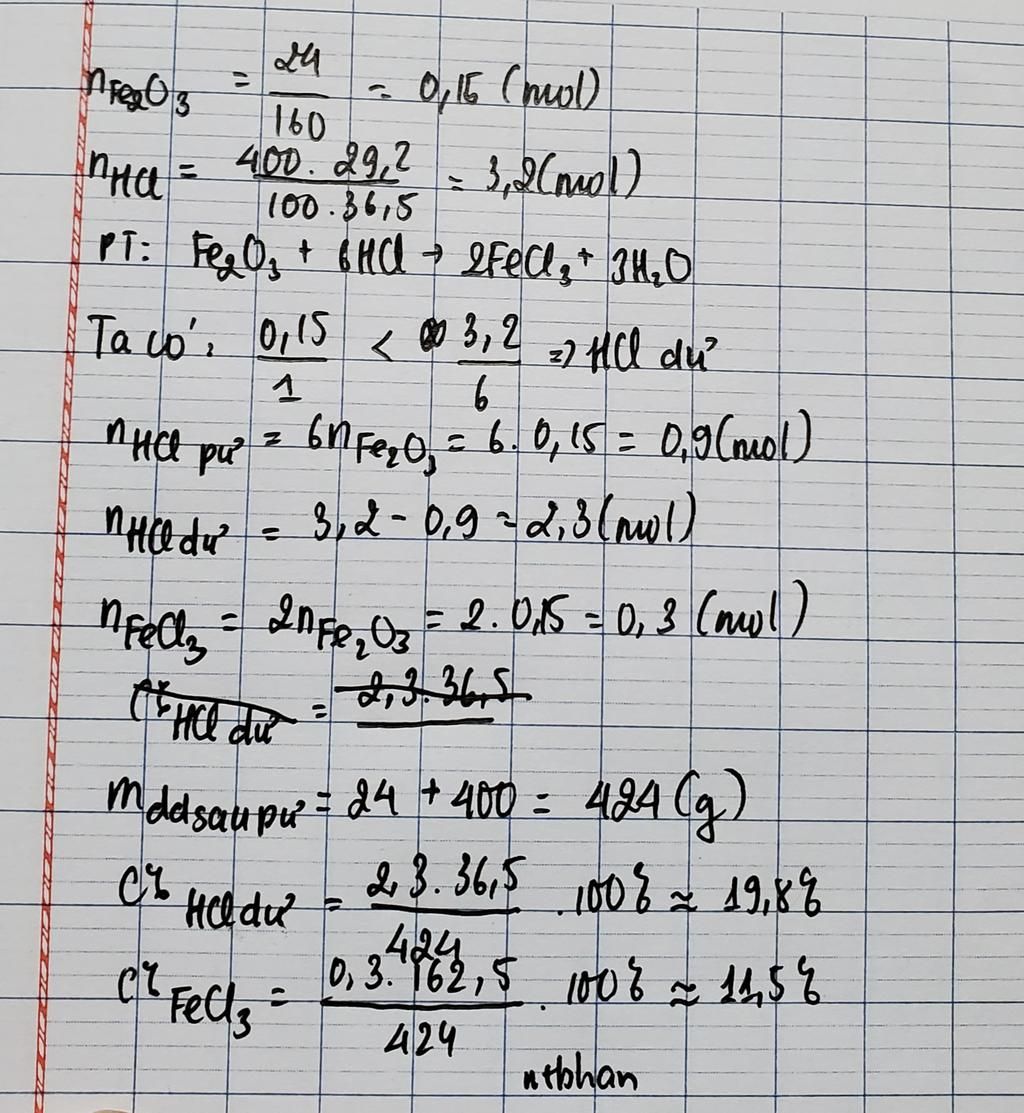 nFe₂O₃ = 24/160 = 0,15 (mol)
nHCl = 400.29,2/100.36,5 = 3,2(mol)
PT: Fe₂O₃ + 6HCl → 2FeCl₃ + 3H₂O
Ta có: 0,15/1 < 3,2/6 => HCl dư
nHCl pư = 6nFe₂O₃ = 6.0,15 = 0,9(mol)
nHCl dư = 3,2 - 0,9 = 2,3(mol)
nFeCl₃ = 2nFe₂O₃ = 2.0,15 = 0,3 (mol)
C% HCl dư = 2,3.36,5
mdd sau pư = 24 + 400 = 424 (g)
C% HCl dư = 2,3.36,5/424 .100% ≈ 19,8%
C% FeCl₃ = 0,3.162,5/424 .100% ≈ 11,5%
ntbhan